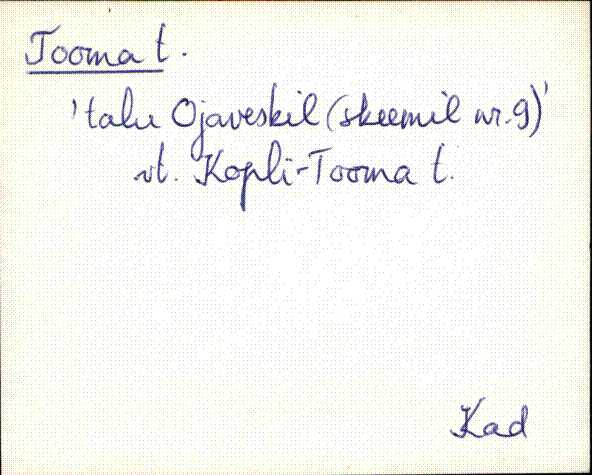 Tooma t.
'talu Ojaveskil (skeemil nr. 9)'
vt. Kopli-Tooma t.
Kad